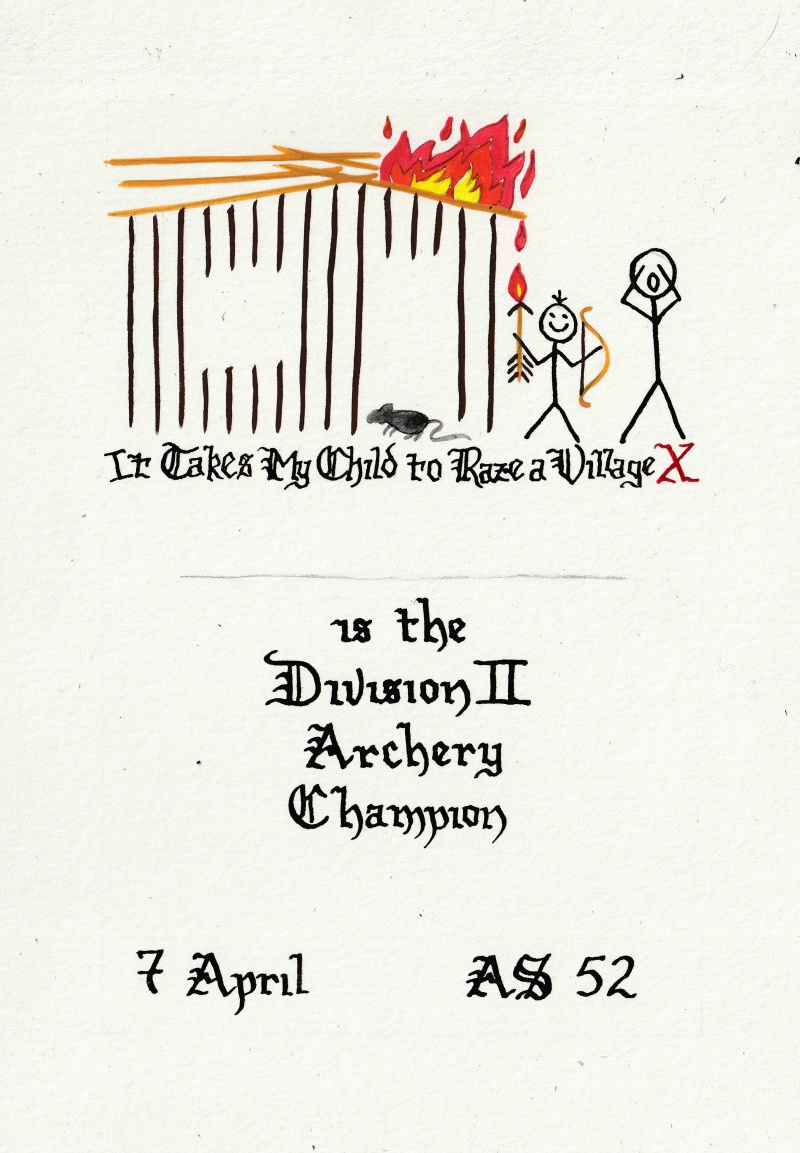 It Takes My Child to Raze a Village X
is the
Division II
Archery
Champion
7 April AS 52